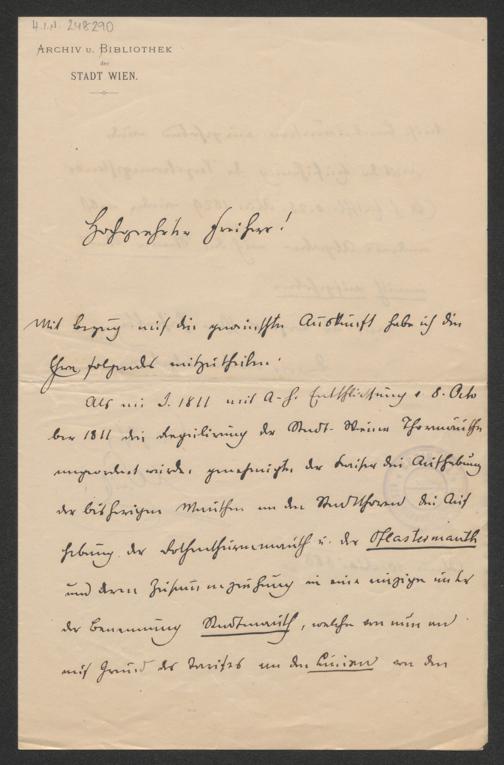 H.I.N. 248290
ARCHIV U. BIBLIOTHEK
der
STADT WIEN.
Hochgeehrter Freiherr!
Mit Bezug auf die gewünschte Auskunft habe ich die
Ehre folgendes mitzutheilen:
Als im J. 1811 mit A. h. Entschließung v. 8. Octo
ber 1811 die Regulirung der Stadt Wiener Thormäuthe
angeordnet wurde, genehmigte der Kaiser die Aufhebung
der bisherigen Mauthen an den Stadtthoren die Auf
hebung der Rothenthurmmauth u. der Pflastermauth
und deren Zusammenziehung in eine einzige unter
der Benennung Stadtmauth, welche von nun an
auf Grund des Tarifes an den Linien von den